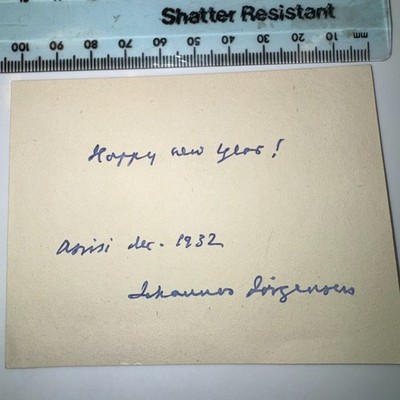 Shatter Resistant
mm 10 20 30 40 50 60 70 80 90 100
Happy new Year!
Assisi dec. 1932
Johannes Jörgensen